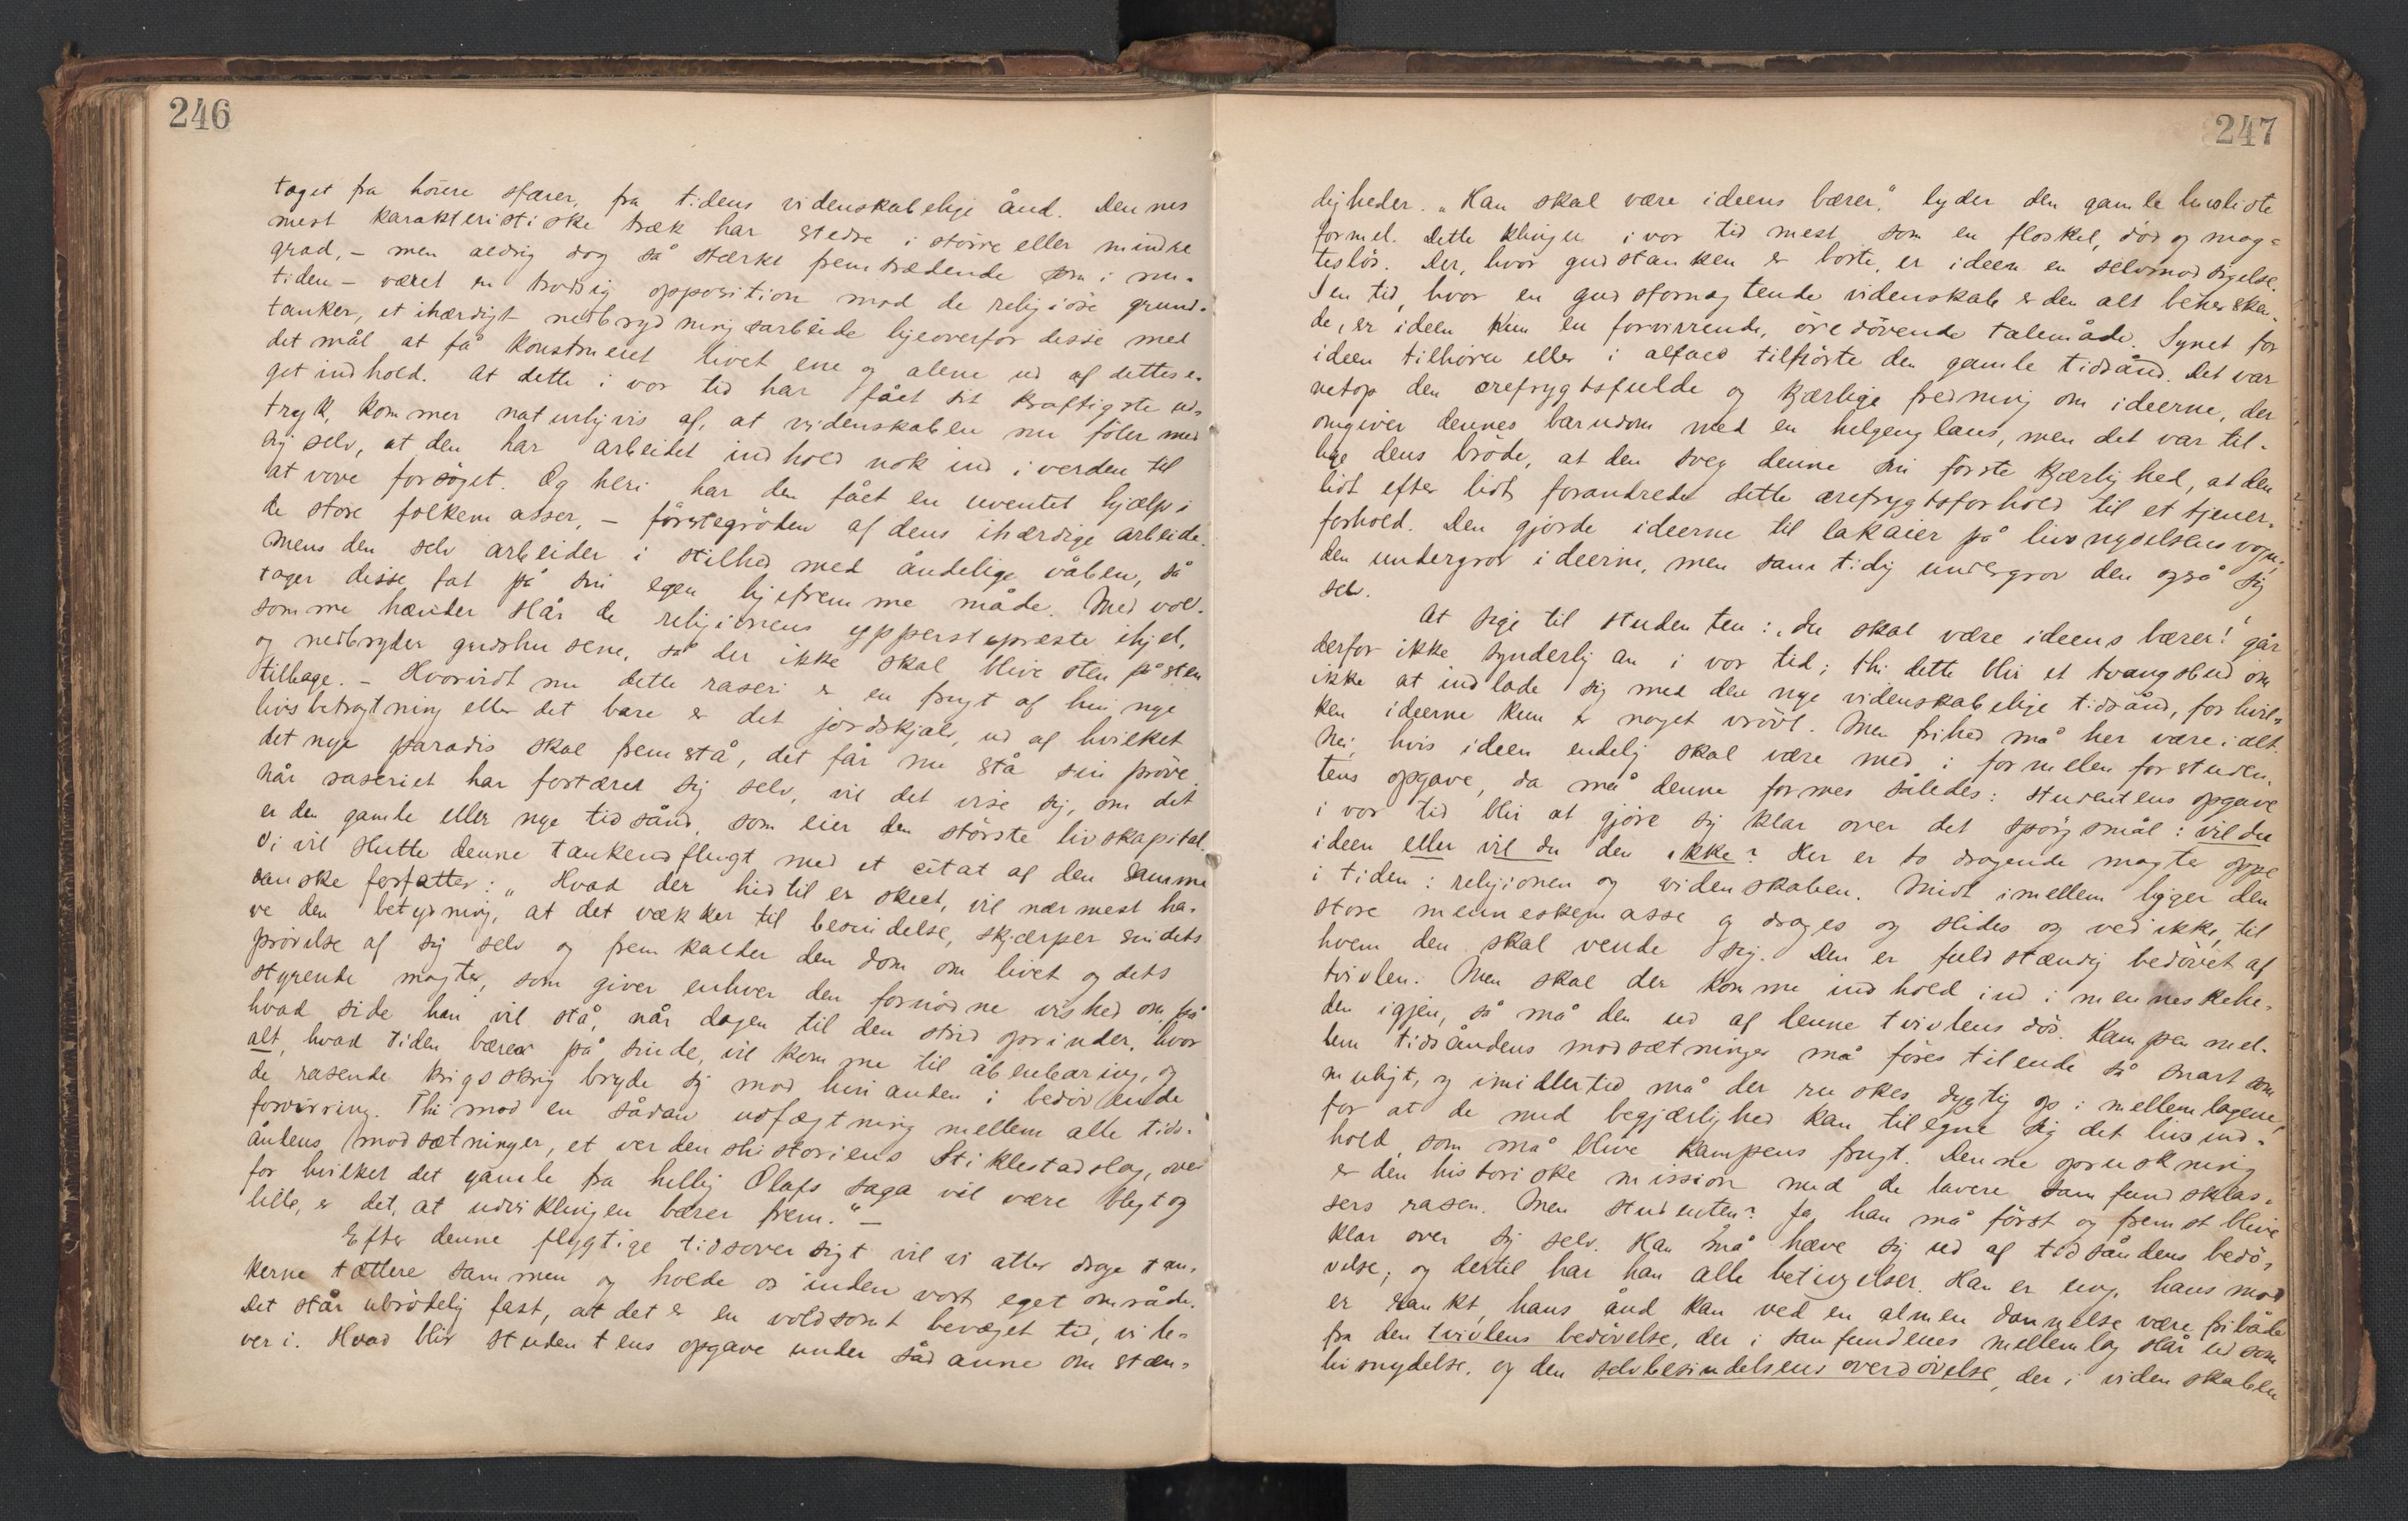 246
taget fra høiere sfærer, fra tidens videnskabelige ånd. Dennes
mest karakteristiske træk har stedse i större eller mindre
grad, – men aldrig dog så stærkt fremtrædende som i nu-
tiden – været en trodsig opposition mod de religiöse grund-
tanker, et ihærdigt nedbrydningsarbeide ligeoverfor disse med
det mål at få konstrueret livet ene og alene ud af dettes e-
get indhold. At dette i vor tid har fået sit kraftigste ud-
tryk, kommer naturligvis af, at videnskaben nu föler med
sig selv, at den har arbeidet indhold nok ind i verden til
at vove forsöget. Og heri har den fået en uventet hjælp i
de store folkemasser, – förstegröden af dens ihærdige arbeide.
Mens den selv arbeider i stilhed med åndelige våben, så
tager disse fat på sin egen ligefremme måde. Med vold-
somme hænder slår de religionens ypperstepræste ihjel,
og nedbryder gudshusene, så der ikke skal blive sten på sten
tilbage. – Hvorvidt nu dette raseri er en frugt af hin nye
livsbetragtning eller det bare er det jordskjælv, ud af hvilket
det nye paradis skal fremstå, det får nu stå sin pröve.
Når raseriet har fortæret sig selv, vil det vise sig, om det
er den gamle eller nye tidsånd, som eier den störste livskapital.
Vi vil slutte denne tankeudflugt med et citat af den samme
danske forfatter: „Hvad der hidtil er skeet, vil nærmest ha-
ve den betydning, at det vækker til besindelse, skjærper sindets
prövelse af sig selv og fremkalder den dom om livet og dets
styrende magter, som giver enhver den fornödne vished om, på
hvad side han vil stå, når dagen til den strid oprinder, hvor
alt, hvad tiden bærer på sinde, vil komme til åbenbaring, og
de rasende krigsskrig bryde sig mod hinanden i bedövende
forvirring. Thi mod en sådan udfægtning mellem alle tids-
åndens modsætninger, et verdenshistoriens Stiklestadslag, over
for hvilket det gamle fra hellig Olafs saga vil være blegt og
lille, er det, at udviklingen bærer frem.“ –
Efter denne flygtige tidsoversigt vil vi atter drage tan-
kerne tættere sammen og holde os inden vort eget område.
Det står ubrödelig fast, at det er en voldsomt bevæget tid, vi le-
ver i. Hvad blir studentens opgave under sådanne omstæn-
247
digheder. „Han skal være ideens bærer,“ lyder den gamle
formel. Dette klinger i vor tid mest som en floskel, död og mag-
teslös. Der, hvor gudstanken er borte, er ideen en selvmodsigelse.
I en tid, hvor en gudsfornægtende videnskab er den alt beherske-
de, er ideen kun en forvirrende, öredövende talemåde. Synet for
ideen tilhörer eller i alfald tilhörte den gamle tidsånd. Det var
netop den ærefrygtsfulde og kjærlige fredning om ideerne, der
omgiver dennes barndom med en helgenglans, men det var til-
lige dens bröde, at den sveg denne sin förste kjærlighed, at den
lidt efter lidt forandrede dette ærefrygtsforhold til et tjener-
forhold. Den gjorde ideerne til lakaier på livsnydelsens vogn;
den undergrov ideerne, men samtidig undergrov den også sig
selv.
At sige til studenten: „du skal være ideens bærer!“ går
derfor ikke synderlig an i vor tid; thi dette blir et tvangsbud om
ikke at indlade sig med den nye videnskabelige tidsånd, for hvil-
ken ideerne kun er noget vrövl. Men frihed må her være i alt.
Nei, hvis ideen endelig skal være med i formelen for studen-
tens opgave, da må denne formes således: studentens opgave
i vor tid blir at gjöre sig klar over det spörgsmål: vil du
ideen eller vil du den ikke? Her er to dragende magter oppe
i tiden: religionen og videnskaben. Midt imellem ligger den
store menneskemasse og drages og slides og ved ikke, til
hvem den skal vende sig. Den er fuldstændig bedövet af
tvivlen. Men skal der komme indhold ind i menneskehe-
den igjen, så må den ud af denne tvivlens död. Kampen mel-
lem tidsåndens modsætninger må föres tilende så snart som
muligt, og imidlertid må der ruskes dygtig op i mellemlagene,
for at de med begjærlighed kan tilegne sig det livsind-
hold, som må blive kampens frugt. Denne opruskning
er den historiske mission med de lavere samfundsklas-
sers rasen. Men studenten? Ja, han må först og fremst blive
klar over sig selv. Han må hæve sig ud af tidsåndens bedö-
velse; og dertil har han alle betingelser. Han er ung, hans mod
er rankt, hans ånd kan ved en almen dannelse være fri både
fra den tvivlens bedövelse, der i samfundenes mellemlag slår ud som
livsnydelse, og den selvbesindelsens overdövelse, der i videnskaben